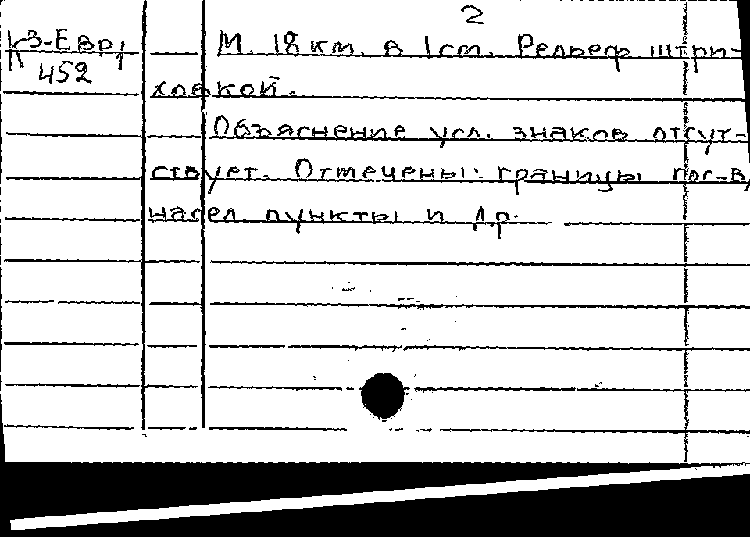 2
К 3-Евр.
452
М. 18 км. в 1 см. Рельеф штри-
ховкой.
Объяснение усл. знаков отсут-
ствует. Отмечены: границы гос-в,
насел. пункты и др.